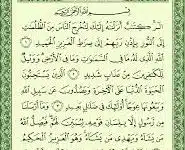 بِسْمِ ٱللَّهِ ٱلرَّحْمَٰنِ ٱلرَّحِيمِ
الٓر كِتَٰبٌ أَنزَلْنَٰهُ إِلَيْكَ لِتُخْرِجَ ٱلنَّاسَ مِنَ ٱلظُّلُمَٰتِ
إِلَى ٱلنُّورِ بِإِذْنِ رَبِّهِمْ إِلَىٰ صِرَٰطِ ٱلْعَزِيزِ ٱلْحَمِيدِ
ٱللَّهِ ٱلَّذِى لَهُۥ مَا فِى ٱلسَّمَٰوَٰتِ وَمَا فِى ٱلْأَرْضِ وَوَيْلٌ
لِّلْكَٰفِرِينَ مِنْ عَذَابٍ شَدِيدٍ ٱلَّذِينَ يَسْتَحِبُّونَ
ٱلْحَيَوٰةَ ٱلدُّنْيَا عَلَى ٱلْأَخِرَةِ وَيَصُدُّونَ عَن سَبِيلِ ٱللَّهِ
وَيَبْغُونَهَا عِوَجًا أُو۟لَٰٓئِكَ فِى ضَلَٰلٍۭ بَعِيدٍ وَمَآ أَرْسَلْنَا
مِن رَّسُولٍ إِلَّا بِلِسَانِ قَوْمِهِۦ لِيُبَيِّنَ لَهُمْ فَيُضِلُّ ٱللَّهُ
مَن يَشَآءُ وَيَهْدِى مَن يَشَآءُ وَهُوَ ٱلْعَزِيزُ ٱلْحَكِيمُ